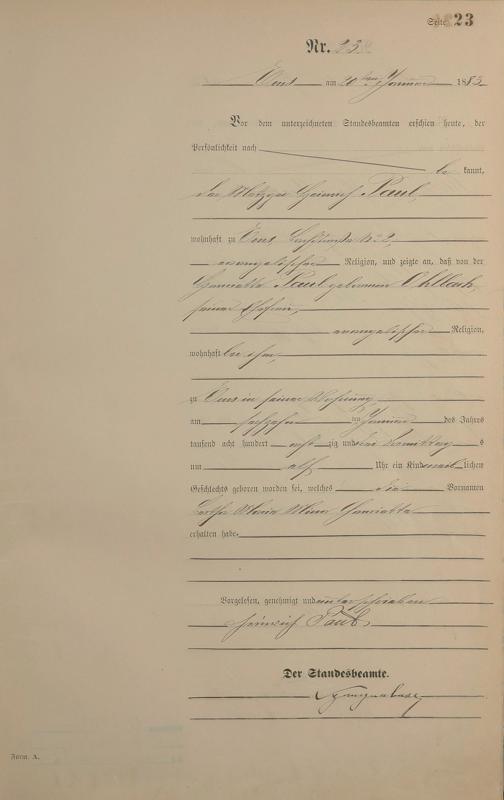 Seite 23
Nr. 23
Ems am 20 ten Januar 1883
Vor dem unterzeichneten Standesbeamten erschien heute, der
Persönlichkeit nach
be kannt,
der Metzger Heinrich Paul,
wohnhaft zu Ems, No 2,
evangelischer Religion, und zeigte an, daß von der
Henriette Paul geborenen Ohlbach,
seiner Ehefrau,
evangelischer Religion,
wohnhaft bei ihm,
zu Ems in seiner Wohnung,
am ten Januar des Jahres
tausend acht hundert acht zig und drei Vormittag s
um elf Uhr ein Kind weib lichen
Geschlechts geboren worden sei, welches die Vornamen
Maria Henriette
erhalten habe.
Vorgelesen, genehmigt und unterschrieben
Heinrich Paul
Der Standesbeamte.
Form. A.